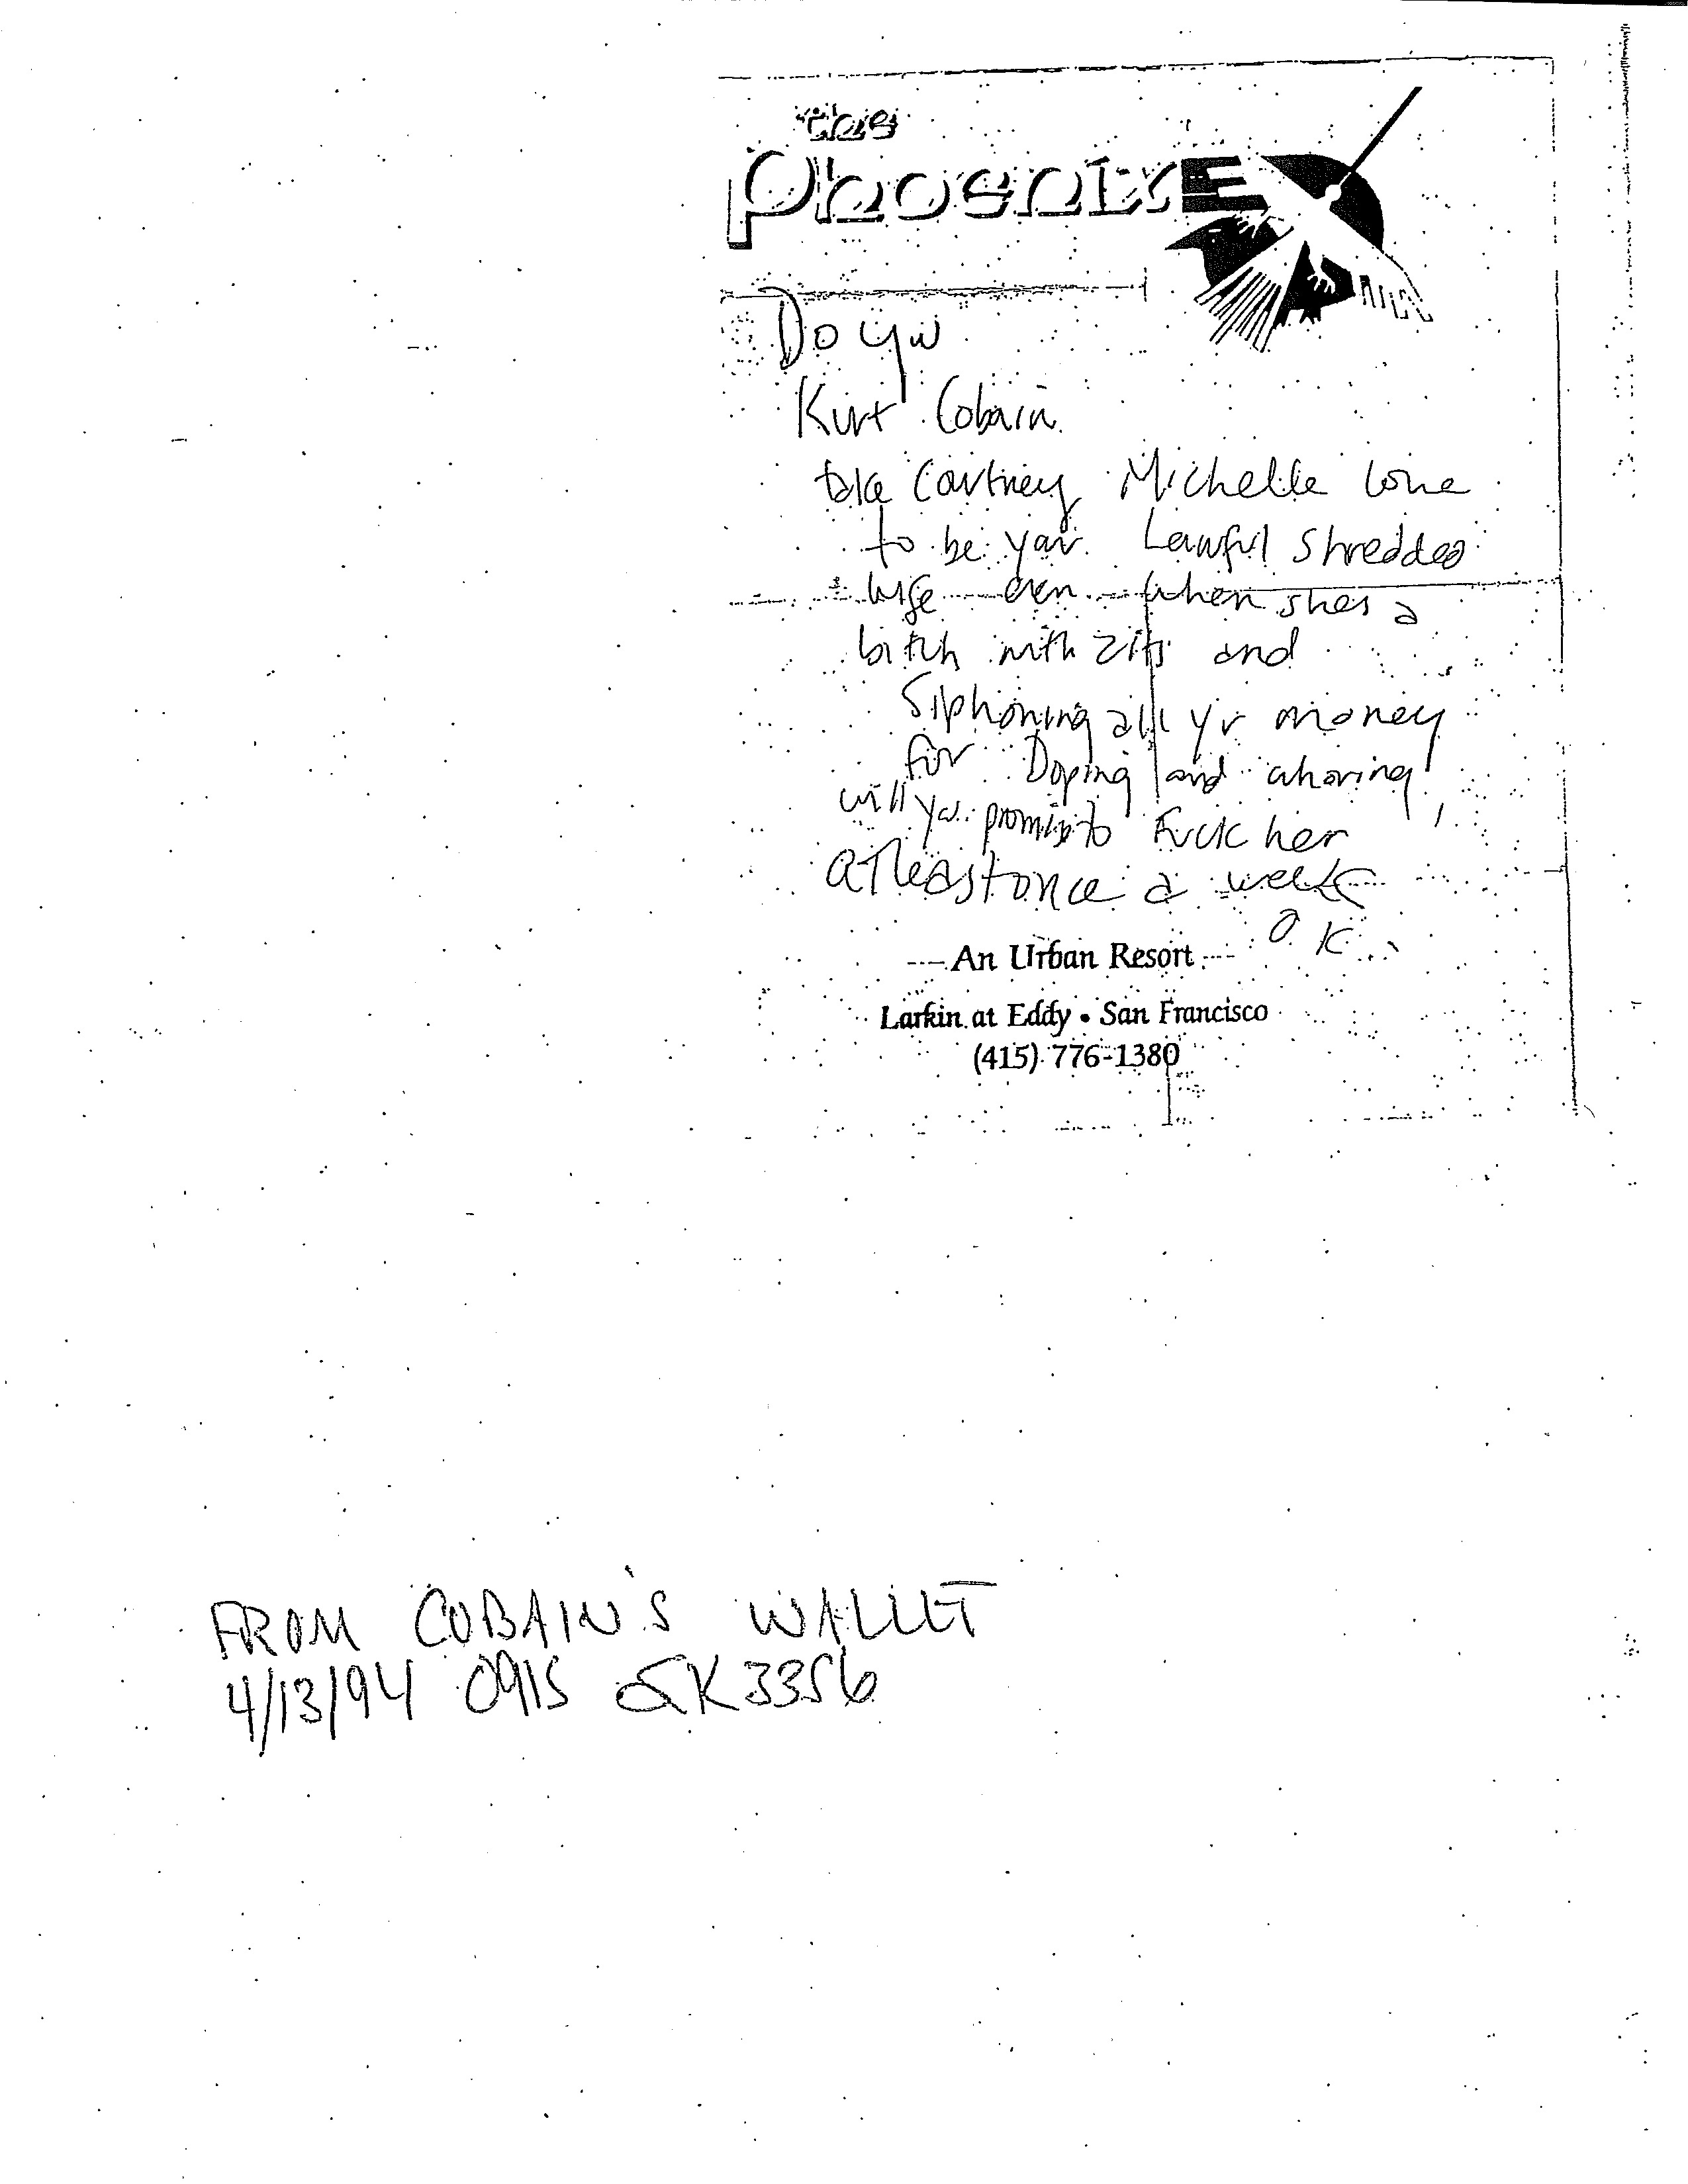 the
Phoenix
Do you
Kurt Cobain
take Courtney Michelle Love
to be your Lawful Shredded
wife even when shes a
bitch with zits and
siphoning all yr money
for Doping and whoring
will you promise to Fuck her
atleast once a week
O.K.
An Urban Resort
Larkin at Eddy • San Francisco
(415) 776-1380
FROM COBAIN'S WALLET
4/13/94 0915 3356